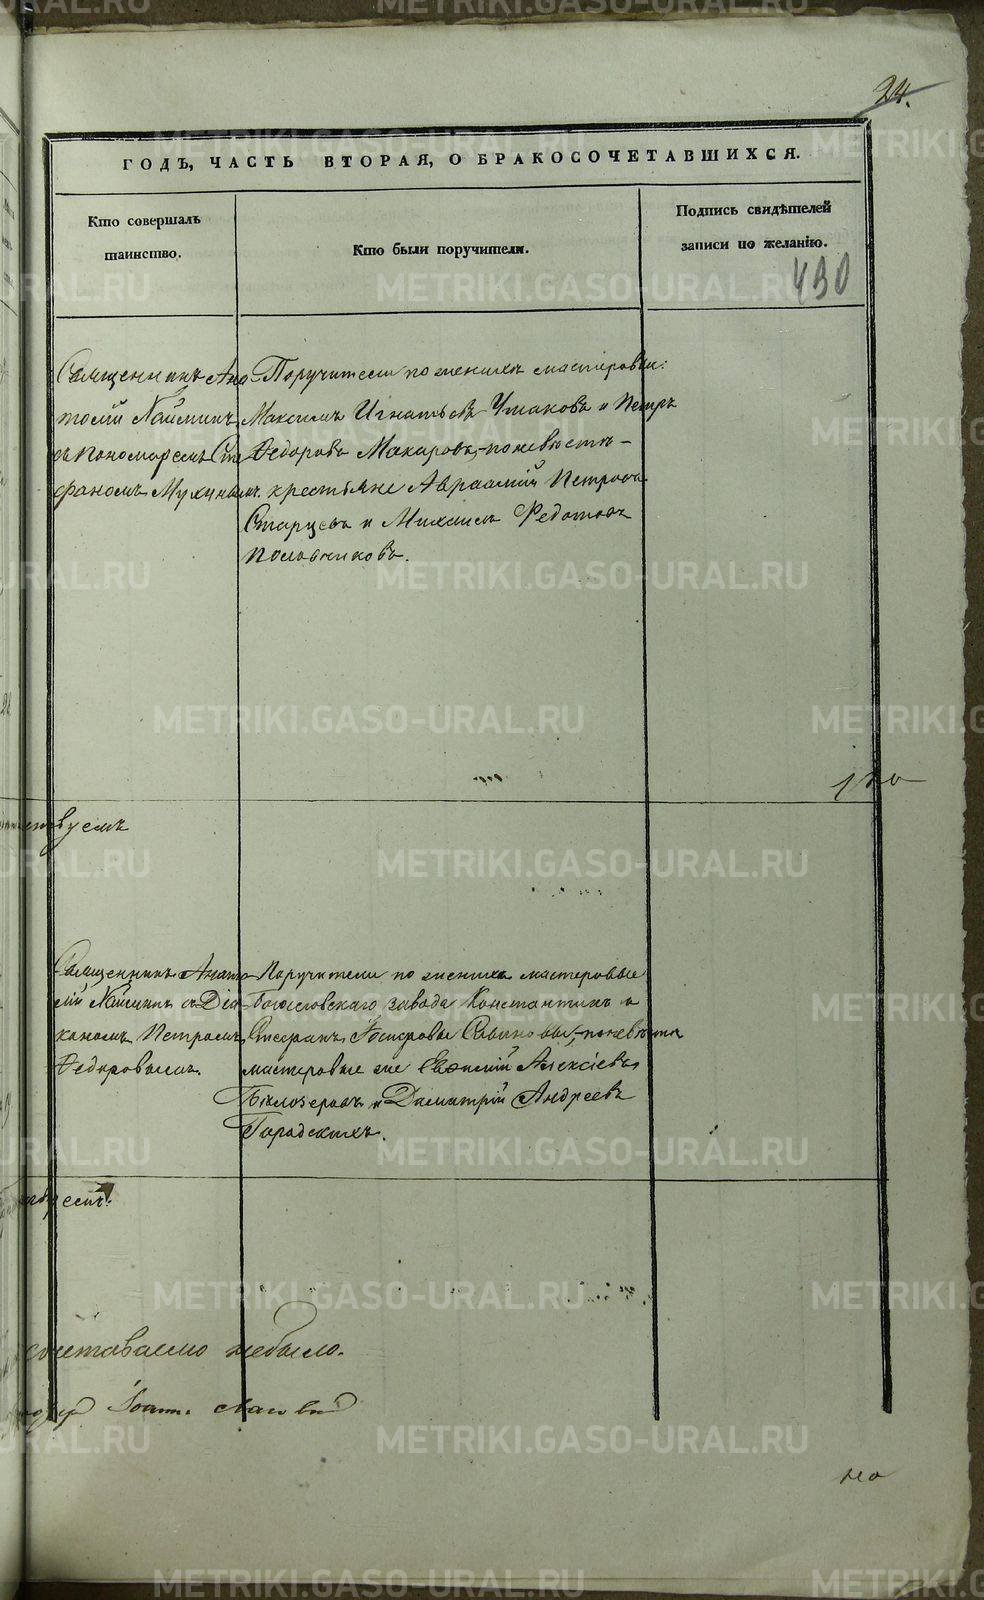 24.
ГОДЪ, ЧАСТЬ ВТОРАЯ, О БРАКОСОЧЕТАВШИХСЯ.
Кто совершалъ
таинство.
Кто были поручители.
Подпись свидѣтелей
записи по желанію.
430
Священникъ Ана
толій
съ Пономаремъ Сте
фаномъ Мухинымъ.
Поручители по женихѣ мастеровые:
Максимъ Игнатьевъ Ушаковъ и Петръ
Ѳедоровъ Макаровъ, по невѣстѣ
крестьяне Авраамій Петровъ
Старцевъ и Михаилъ Федотовъ
Половниковъ.
ствуемъ
Священникъ Анато
лій съ Діа
кономъ Петромъ
Ѳедоровымъ.
Поручители по женихѣ мастеровые
Богословскаго завода Константинъ и
Стефанъ, по невѣстѣ
мастеровые же Евѳимій Алексѣевъ
Бѣлозеровъ и Димитрій Андреевъ
Городскихъ.
сочетаваемо небыло.
METRIKI.GASO-URAL.RU